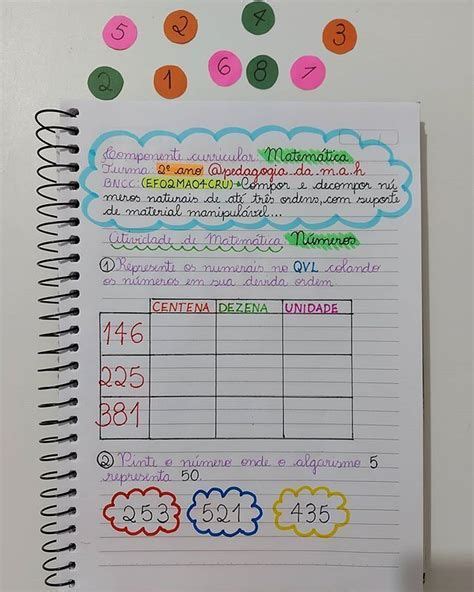 5 2 4 3
2 1 6 8 7
Componente curricular: Matemática
Turma: 2º ano @pedagogia.da.m.a.h
BNCC: (EF02MA04CRU) Compor e decompor nú
meros naturais de até três ordens, com suporte
de material manipulável...
Atividade de Matemática Números
1 Represente os numerais no QVL colando
os números em sua devida ordem
CENTENA DEZENA UNIDADE
146
225
381
2 Pinte o número onde o algarismo 5
representa 50.
253 521 435